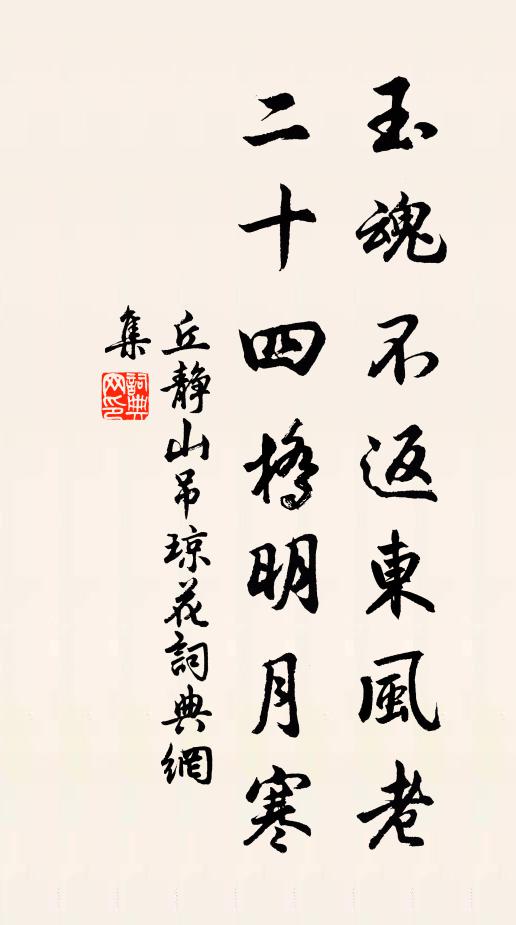 玉魂不返東風老
二十四橋明月寒
丘靜山吊琼花詞典網
集
詞典
网印